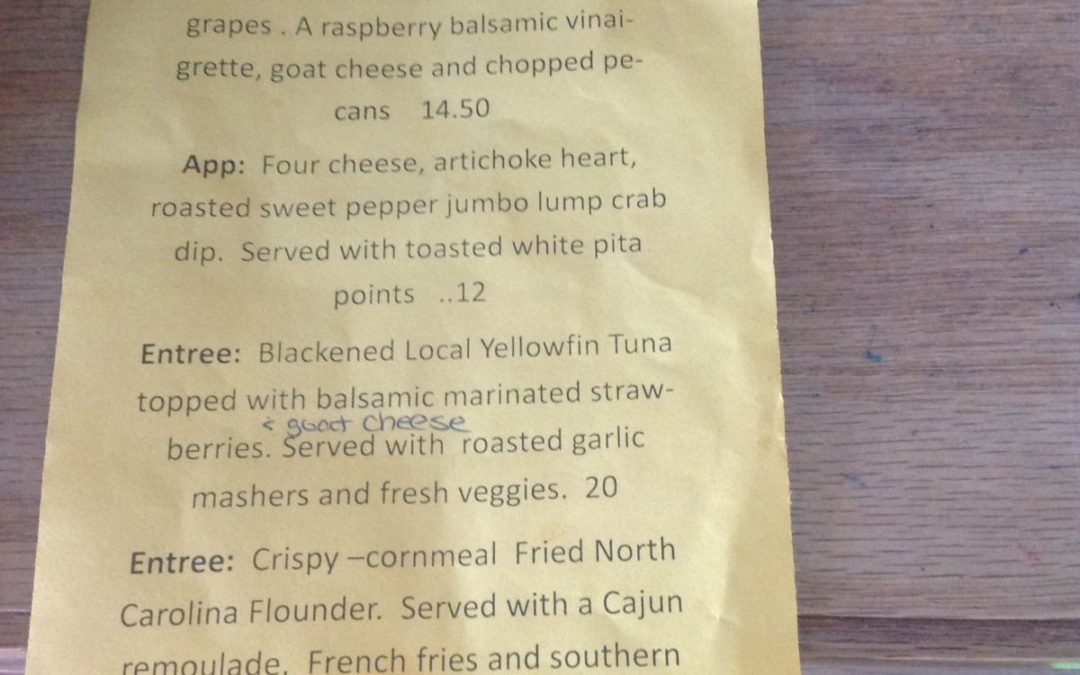 grapes . A raspberry balsamic vinai-
grette, goat cheese and chopped pe-
cans 14.50
App: Four cheese, artichoke heart,
roasted sweet pepper jumbo lump crab
dip. Served with toasted white pita
points ..12
Entree: Blackened Local Yellowfin Tuna
topped with balsamic marinated straw-
& goat cheese
berries. Served with roasted garlic
mashers and fresh veggies. 20
Entree: Crispy –cornmeal Fried North
Carolina Flounder. Served with a Cajun
remoulade. French fries and southern